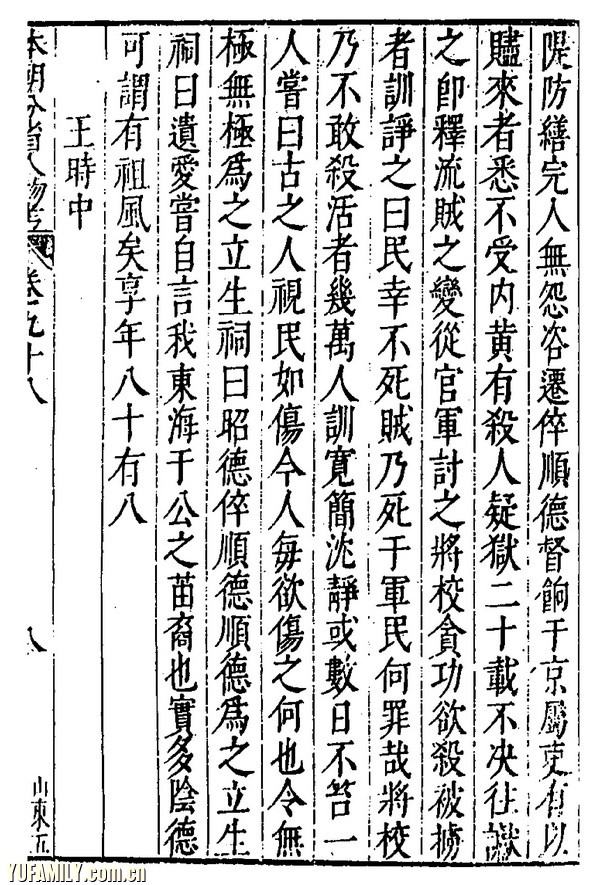 隄防繕完人無怨咨遷倅順德督餉于京屬吏有以
贐來者悉不受内黄有殺人疑獄二十載不決往讞
之卽釋流賊之變從官軍討之將校貪功欲殺被擄
者訓諍之曰民幸不死賊乃死于軍民何罪哉將校
乃不敢殺活者幾萬人訓寛簡沈靜或數日不笞一
人嘗曰古之人視民如傷今人每欲傷之何也令無
極無極爲之立生祠曰昭德倅順德順德爲之立生
祠曰遺愛嘗自言我東海于公之苗裔也實多陰德
可謂有祖風矣享年八十有八
王時中
本朝分省人物考 卷之九十八 八 山東五
YUFAMILY.com.cn